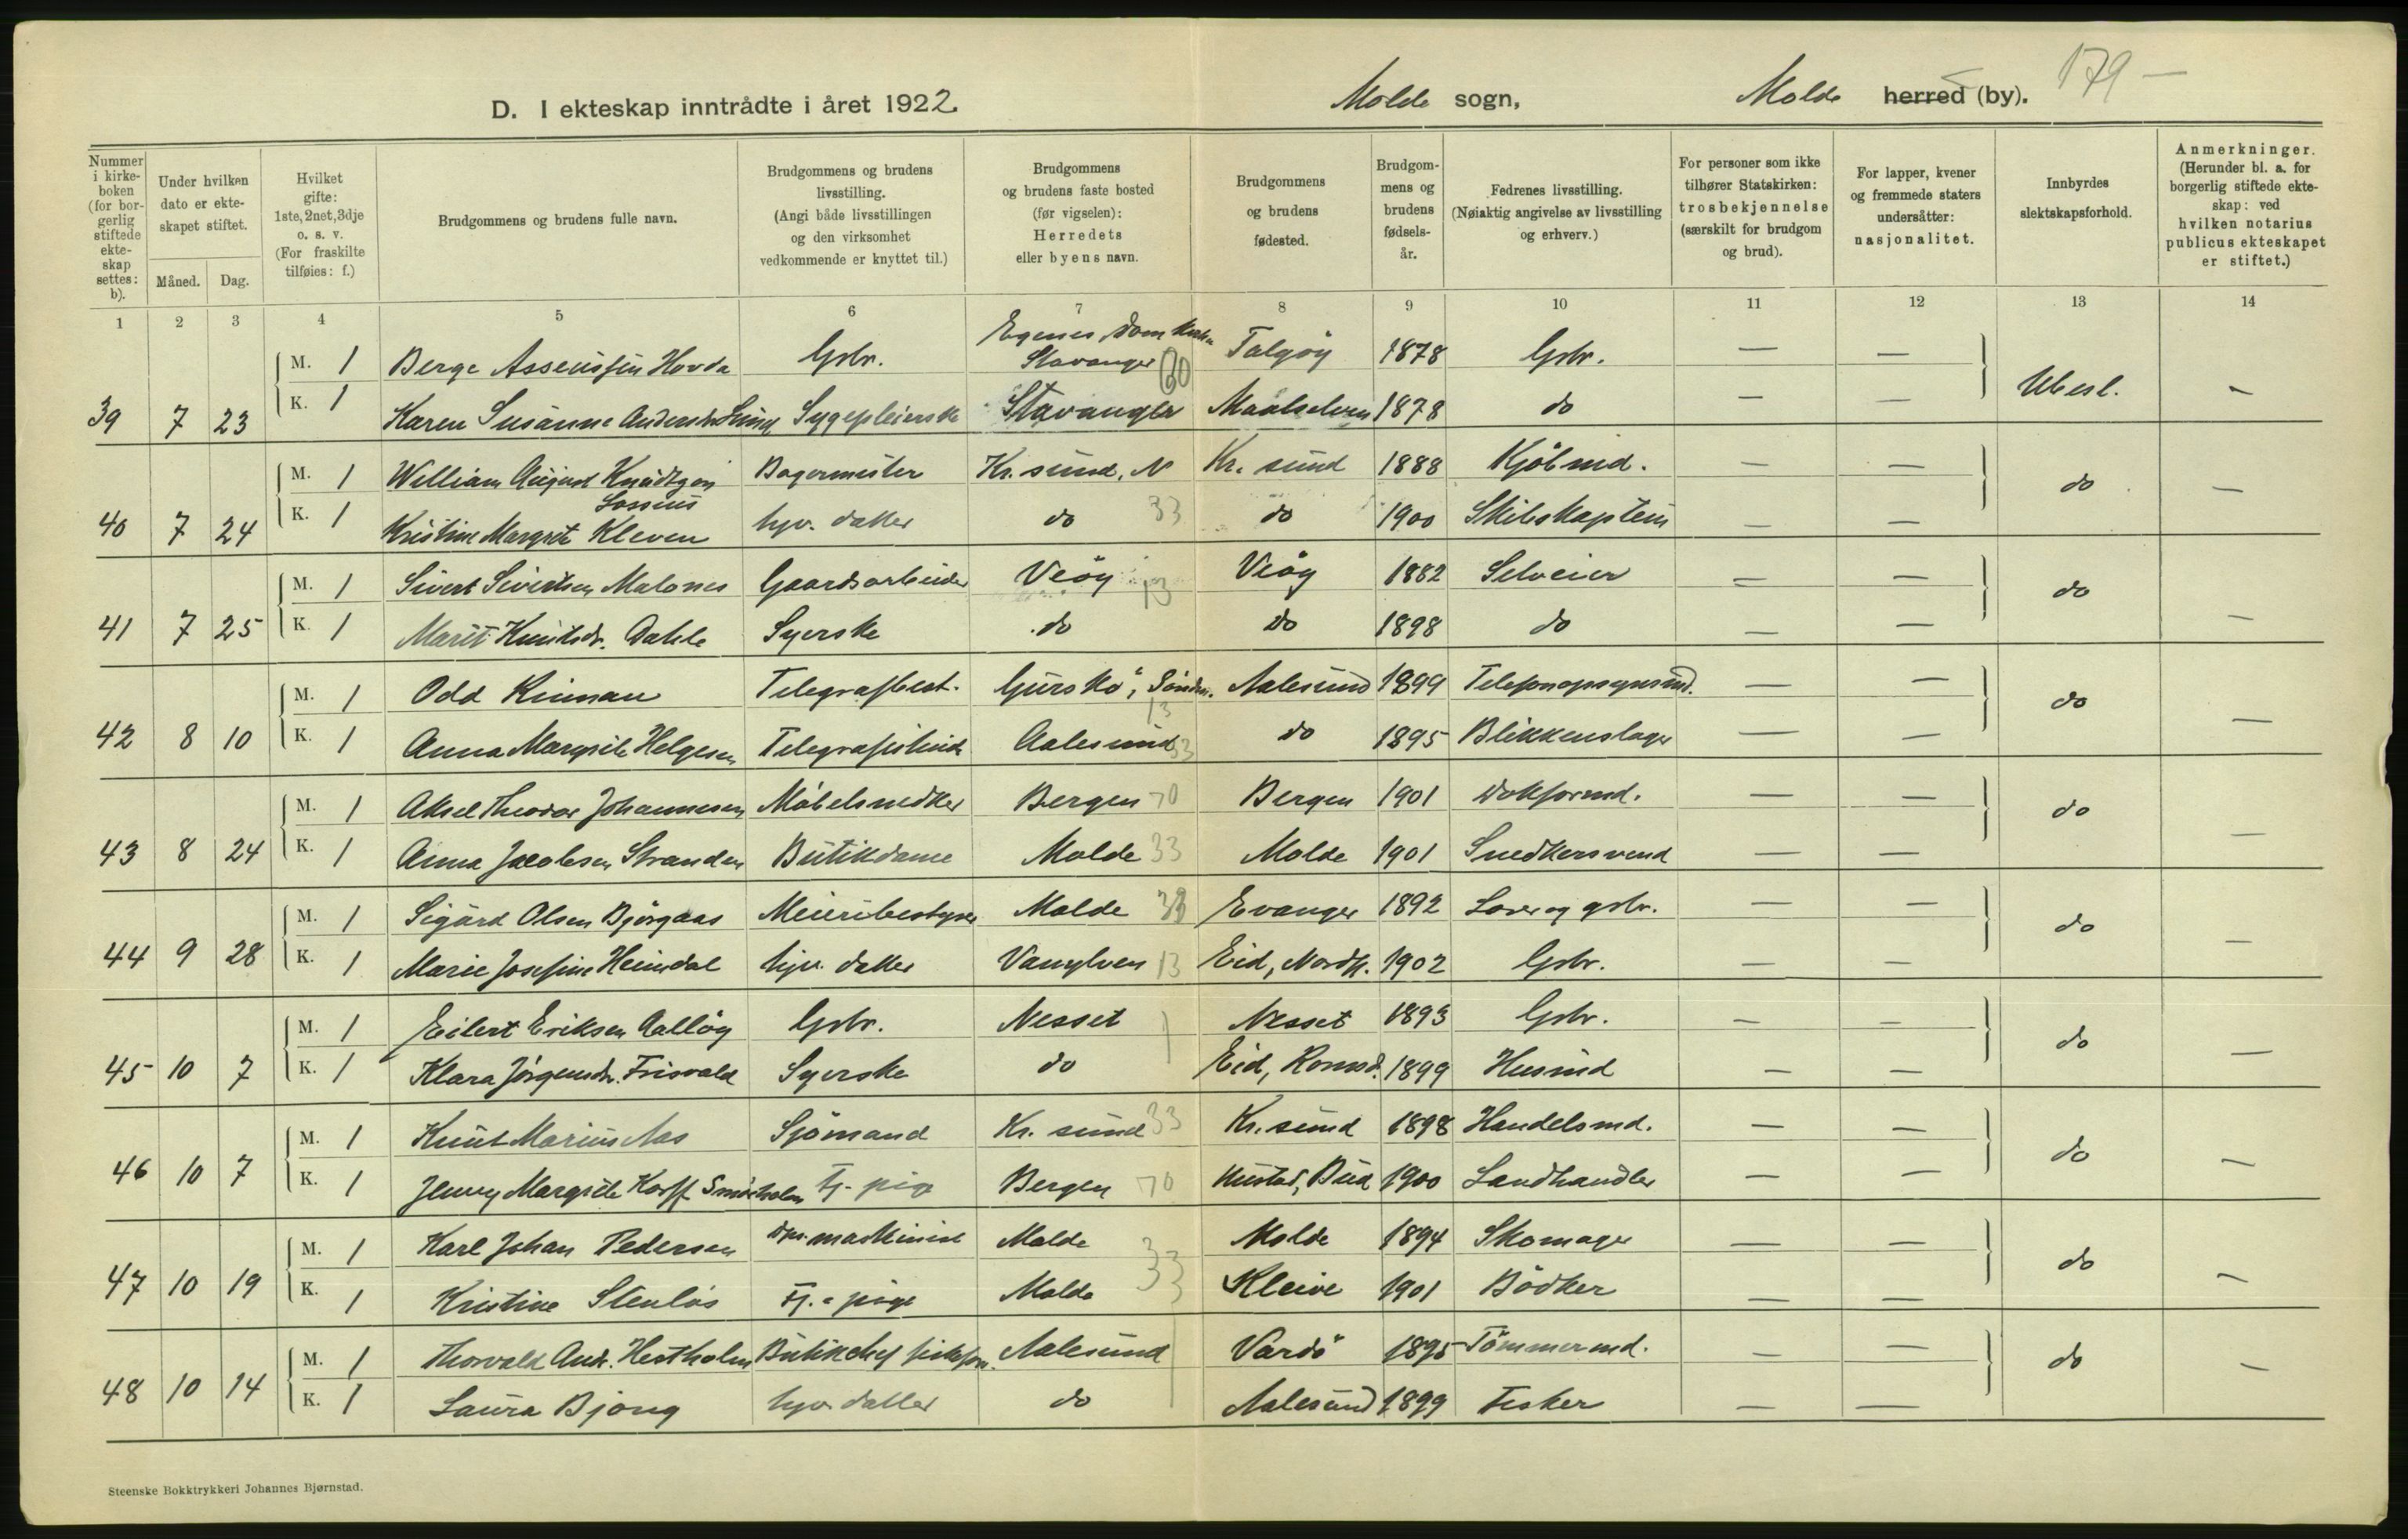 D. I ekteskap inntrådte i året 1922 Molde sogn, Molde herred (by). 179 —
Nummer i kirkeboken (for borgerlig stiftede ekteskap settes: b).
Under hvilken dato er ekteskapet stiftet.
Måned. Dag.
Hvilket gifte: 1ste, 2net, 3dje o. s. v. (For fraskilte tilføies: f.)
Brudgommens og brudens fulle navn.
Brudgommens og brudens livsstilling. (Angi både livsstillingen og den virksomhet vedkommende er knyttet til.)
Brudgommens og brudens faste bosted (før vigselen): Herredets eller byens navn.
Brudgommens og brudens fødested.
Brudgommens og brudens fødselsår.
Fedrenes livsstilling. (Nøiaktig angivelse av livsstilling og erhverv.)
For personer som ikke tilhører Statskirken: trosbekjennelse (særskilt for brudgom og brud).
For lapper, kvener og fremmede staters undersåtter: nasjonalitet.
Innbyrdes slektskapsforhold.
Anmerkninger. (Herunder bl. a. for borgerlig stiftede ekteskap: ved hvilken notarius publicus ekteskapet er stiftet.)
1 2 3 4 5 6 7 8 9 10 11 12 13 14
M. 1 Berge Assenssen Hovda Gbr. Egenes, Domkirke Stavanger Talgøy 1878 Gbr. — —
39 7 23 K. 1 Karen Susanne Andersdr Sygepleierske Stavanger Maalselven 1878 do — — Ubesl. —
M. 1 William August Knudtzon Sossius Bagermester Kr. sund, N Kr. sund 1888 Kjøbmd. — —
40 7 24 K. 1 Kristine Margrete Kleven hjv. datter do 33 do 1900 Skibskaptein — — do —
M. 1 Sivert Sivertsen Malones Gaardsarbeider Veøy 13 Veøy 1882 Selveier — —
41 7 25 K. 1 Marit Knutsdr. Dahle Syerske do do 1898 do — — do —
M. 1 Odd Kinnan Telegrafbest. Gurskö, Söndm. 13 Aalesund 1899 Telefonopsynsmd. — —
42 8 10 K. 1 Anna Margrete Helgesen Telegrafistinde Aalesund 33 do 1895 Blikkenslager — — do —
M. 1 Aksel Theodor Johannesen Möbelsnedker Bergen 70 Bergen 1901 Dokformd. — —
43 8 24 K. 1 Anna Jacobsen Stranden Butikdame Molde 33 Molde 1901 Snedkersvend — — do —
M. 1 Sigurd Olsen Bjørgaas Meieribestyrer Molde 33 Evanger 1892 Lærer og gbr. — —
44 9 28 K. 1 Marie Josefine Heimdal hjv. datter Vanylven 13 Eid, Nordfj. 1902 Gbr. — — do —
M. 1 Eilert Eriksen Aalløy Gbr. Nesset Nesset 1893 Gbr. — —
45 10 7 K. 1 Klara Jørgensdr. Frisvold Syerske do Eid, Romsd. 1899 Husmd — — do —
M. 1 Knut Marius Aas Sjömand Kr. sund 33 Kr. sund 1898 Handelsmd. — —
46 10 7 K. 1 Jenny Margrete Korff Smörholm tj. pige Bergen 70 Hustad, Bud 1900 Landhandler — — do —
M. 1 Karl Johan Pedersen Dps. maskinist Molde 33 Molde 1894 Skomager — —
47 10 19 K. 1 Kristine Stenlös tj. pige Molde Kleive 1901 Bödker — — do —
M. 1 Thorvald Andr. Hestholm Butikchef Aalesund Vardö 1895 Tömmermd. — —
48 10 14 K. 1 Laura Bjong hjv. datter do Aalesund 1899 Fisker — — do —
Steenske Bokktrykkeri Johannes Bjørnstad.